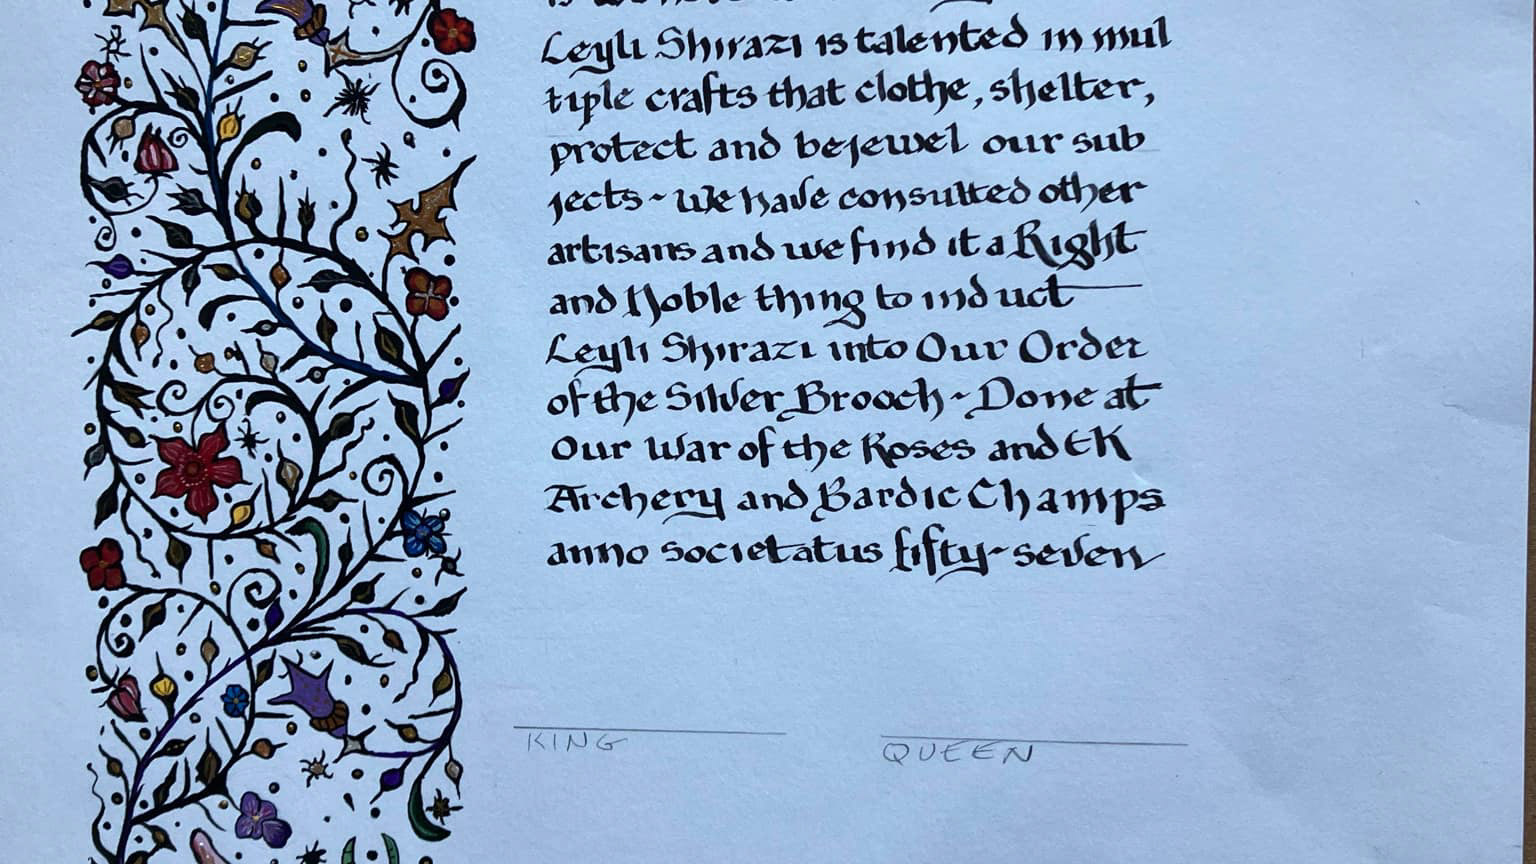 Leyli Shirazi is talented in mul
tiple crafts that clothe, shelter,
protect and bejewel our sub
jects ~ We have consulted other
artisans and we find it a Right
and Noble thing to induct
Leyli Shirazi into Our Order
of the Silver Brooch ~ Done at
Our War of the Roses and EK
Archery and Bardic Champs
anno societatus fifty-seven
KING
QUEEN